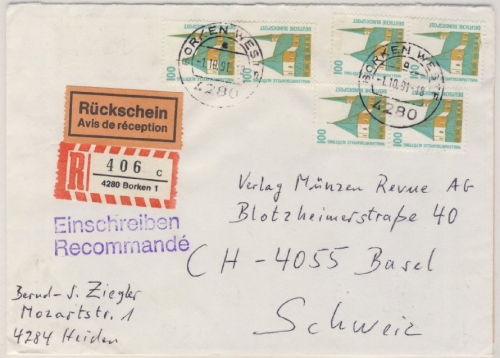 DEUTSCHE BUNDESPOST
WALLFAHRTSKAPELLE ALTÖTTING
100
100
100
100
100
BORKEN WESTF
-1.10.91
4280
BORKEN WESTF
-1.10.91-18
4280
Rückschein
Avis de réception
R
406 c
4280 Borken 1
Einschreiben
Recommandé
Verlag Münzen Revue AG
Blotzheimerstraße 40
CH-4055 Basel
Schweiz
Bernd-J. Ziegler
Mozartstr. 1
4284 Heiden